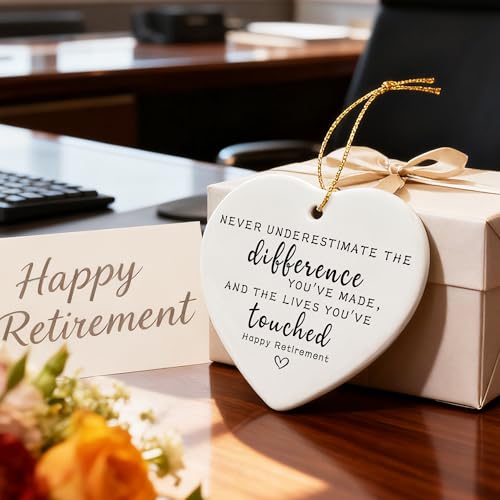 Happy
Retirement
NEVER UNDERESTIMATE THE
difference
YOU'VE MADE,
AND THE LIVES YOU'VE
touched
Happy Retirement